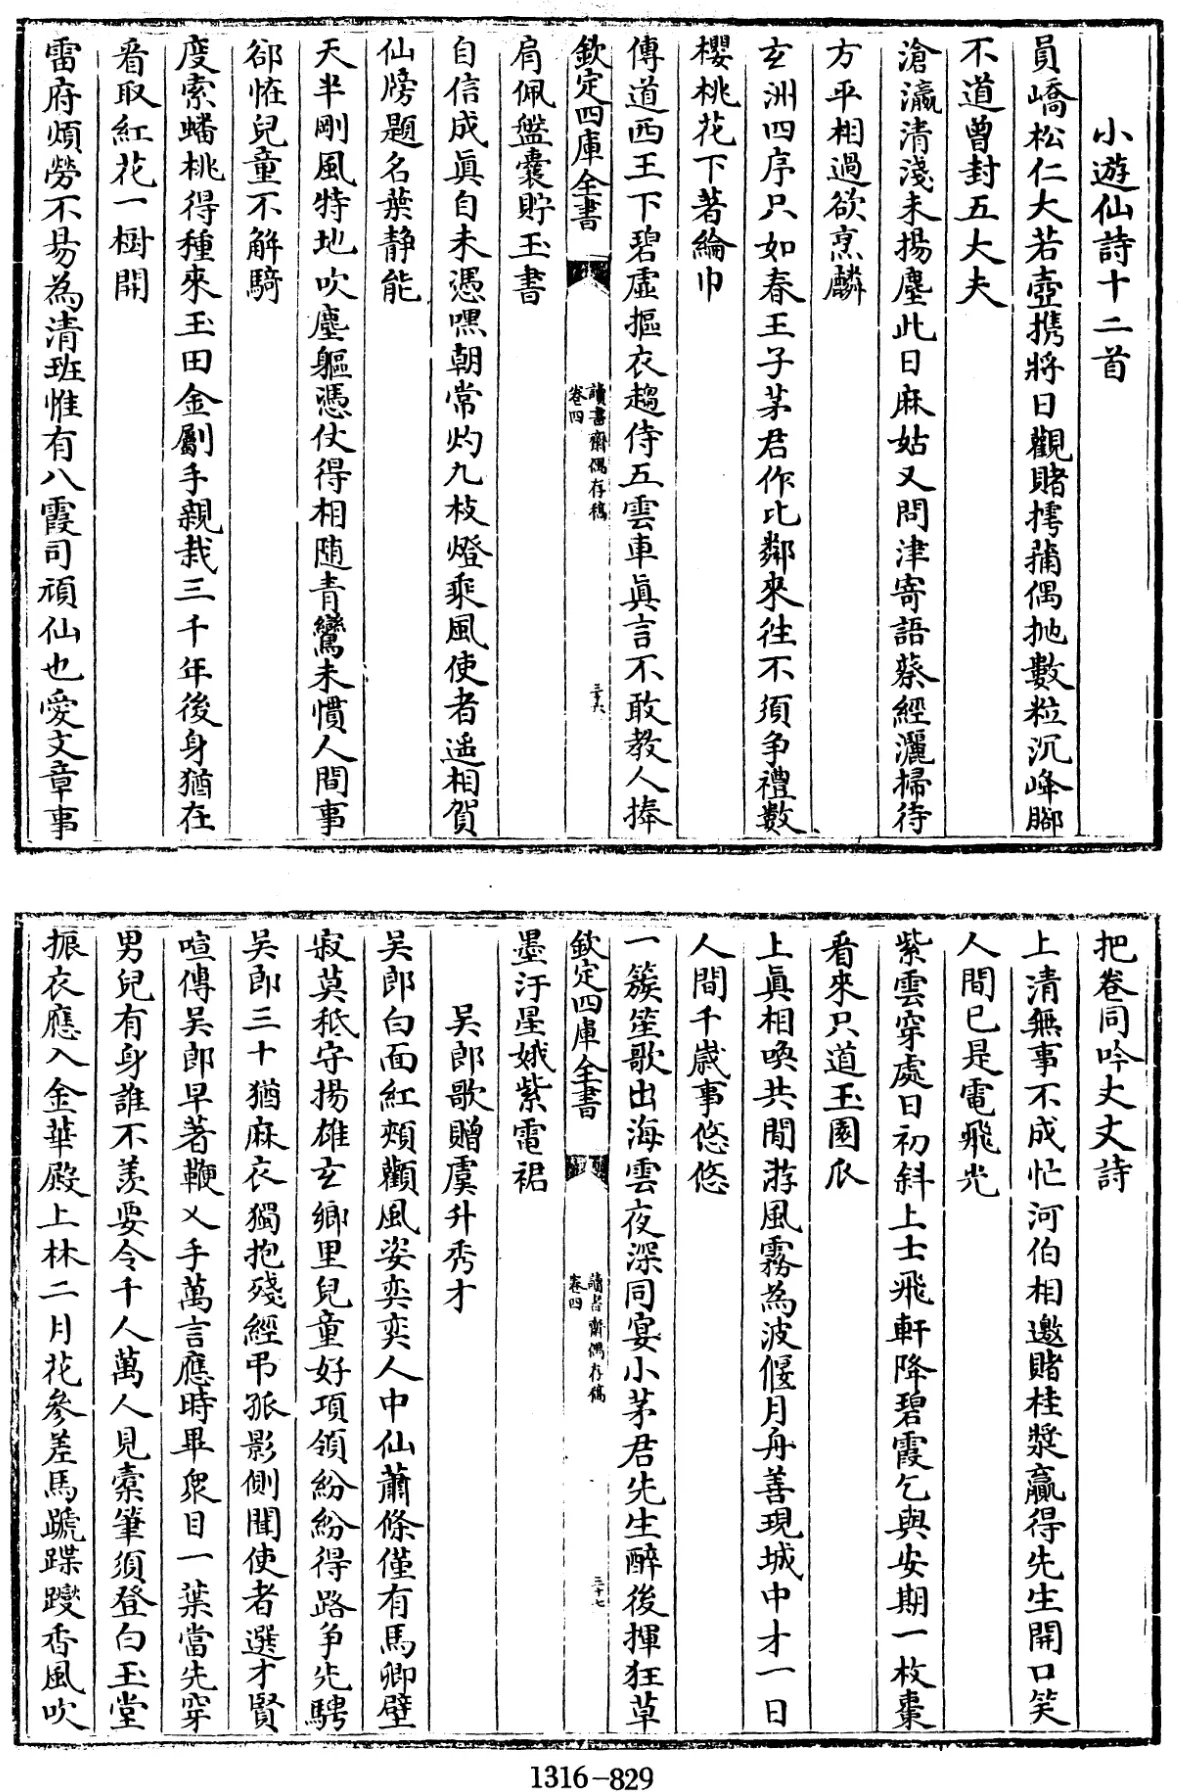 小遊仙詩十二首
員嶠松仁大若壺携將日觀賭摴蒱偶拋數粒沉峰腳
不道曾封五大夫
滄瀛清淺未揚塵此日麻姑又問津寄語蔡經灑掃待
方平相過欲烹麟
玄洲四序只如春王子茅君作比鄰來往不須争禮數
櫻桃花下著綸巾
傳道西王下碧虛摳衣趨侍五雲車眞言不敢教人捧
欽定四庫全書
讀書齋偶存稿
卷四
三十六
肩佩盤囊貯玉書
自信成眞自未憑嘿朝常灼九枝燈乘風使者遥相賀
仙牓題名葉静能
天半剛風特地吹塵軀憑仗得相随青鸞未慣人間事
郤恠兒童不解騎
度索蟠桃得種來玉田金劚手親栽三千年後身猶在
看取紅花一樹開
雷府煩勞不易為清班惟有八霞司頑仙也愛文章事
把卷同吟丈丈詩
上清無事不成忙河伯相邀賭桂漿贏得先生開口笑
人間已是電飛光
紫雲穿處日初斜上士飛軿降碧霞乞與安期一枚棗
看來只道玉園瓜
上眞相喚共閒游風霧為波偃月舟善現城中才一日
人間千嵗事悠悠
一簇笙歌出海雲夜深同宴小茅君先生醉後揮狂草
欽定四庫全書
讀書齋偶存稿
卷四
三十七
墨汙星娥紫電裙
吴郎歌贈虞升秀才
吴郎白面紅頰顴風姿奕奕人中仙蕭條僅有馬卿壁
寂莫秪守揚雄玄鄉里兒童好項領紛紛得路争先騁
吴郎三十猶麻衣獨抱殘經弔孤影側聞使者選才賢
喧傳吴郎早著鞭乂手萬言應時畢衆目一葉當先穿
男兒有身誰不羡要令千人萬人見橐筆須登白玉堂
振衣應入金華殿上林二月花參差馬蹏蹀躞香風吹
1316-829